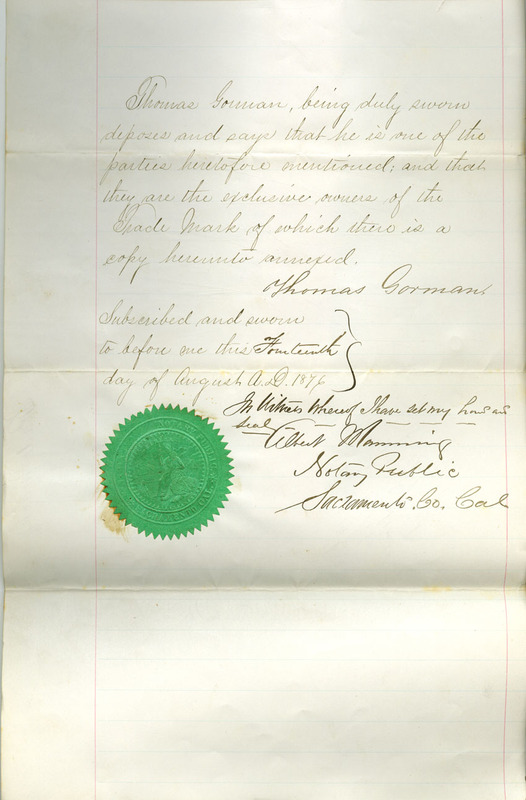 Thomas Gorman, being duly sworn
deposes and says that he is one of the
parties heretofore mentioned; and that
they are the exclusive owners of the
Trade Mark of which there is a
copy hereunto annexed.
Thomas Gorman.
Subscribed and sworn
to before me this Fourteenth
day of August A.D. 1876
In Witness Whereof I have set my hand and
seal
Albert Manning
Notary Public
Sacramento Co. Cal